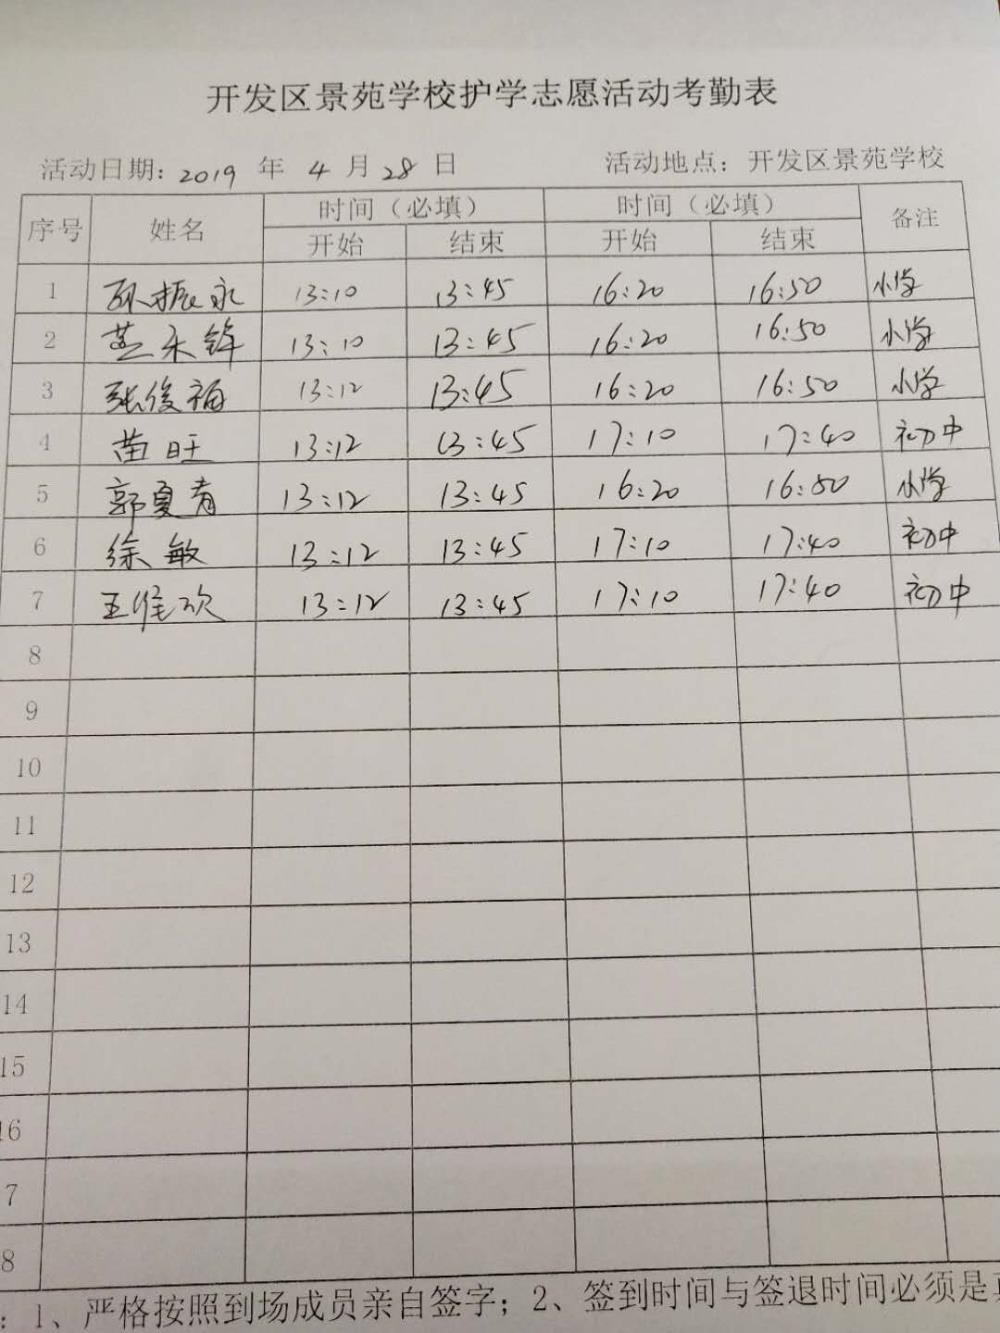 开发区景苑学校护学志愿活动考勤表
活动日期: 2019 年 4 月 28 日 活动地点: 开发区景苑学校
序号 姓名 时间（必填） 时间（必填） 备注
开始 结束 开始 结束
1 孙振永 13:10 13:45 16:20 16:50 小学
2 燕永锋 13:10 13:45 16:20 16:50 小学
3 张俊福 13:12 13:45 16:20 16:50 小学
4 苗旺 13:12 13:45 17:10 17:40 初中
5 郭夏青 13:12 13:45 16:20 16:50 小学
6 徐敏 13:12 13:45 17:10 17:40 初中
7 王维欢 13:12 13:45 17:10 17:40 初中
8
9
10
11
12
13
14
15
16
7
8
: 1、严格按照到场成员亲自签字; 2、签到时间与签退时间必须是